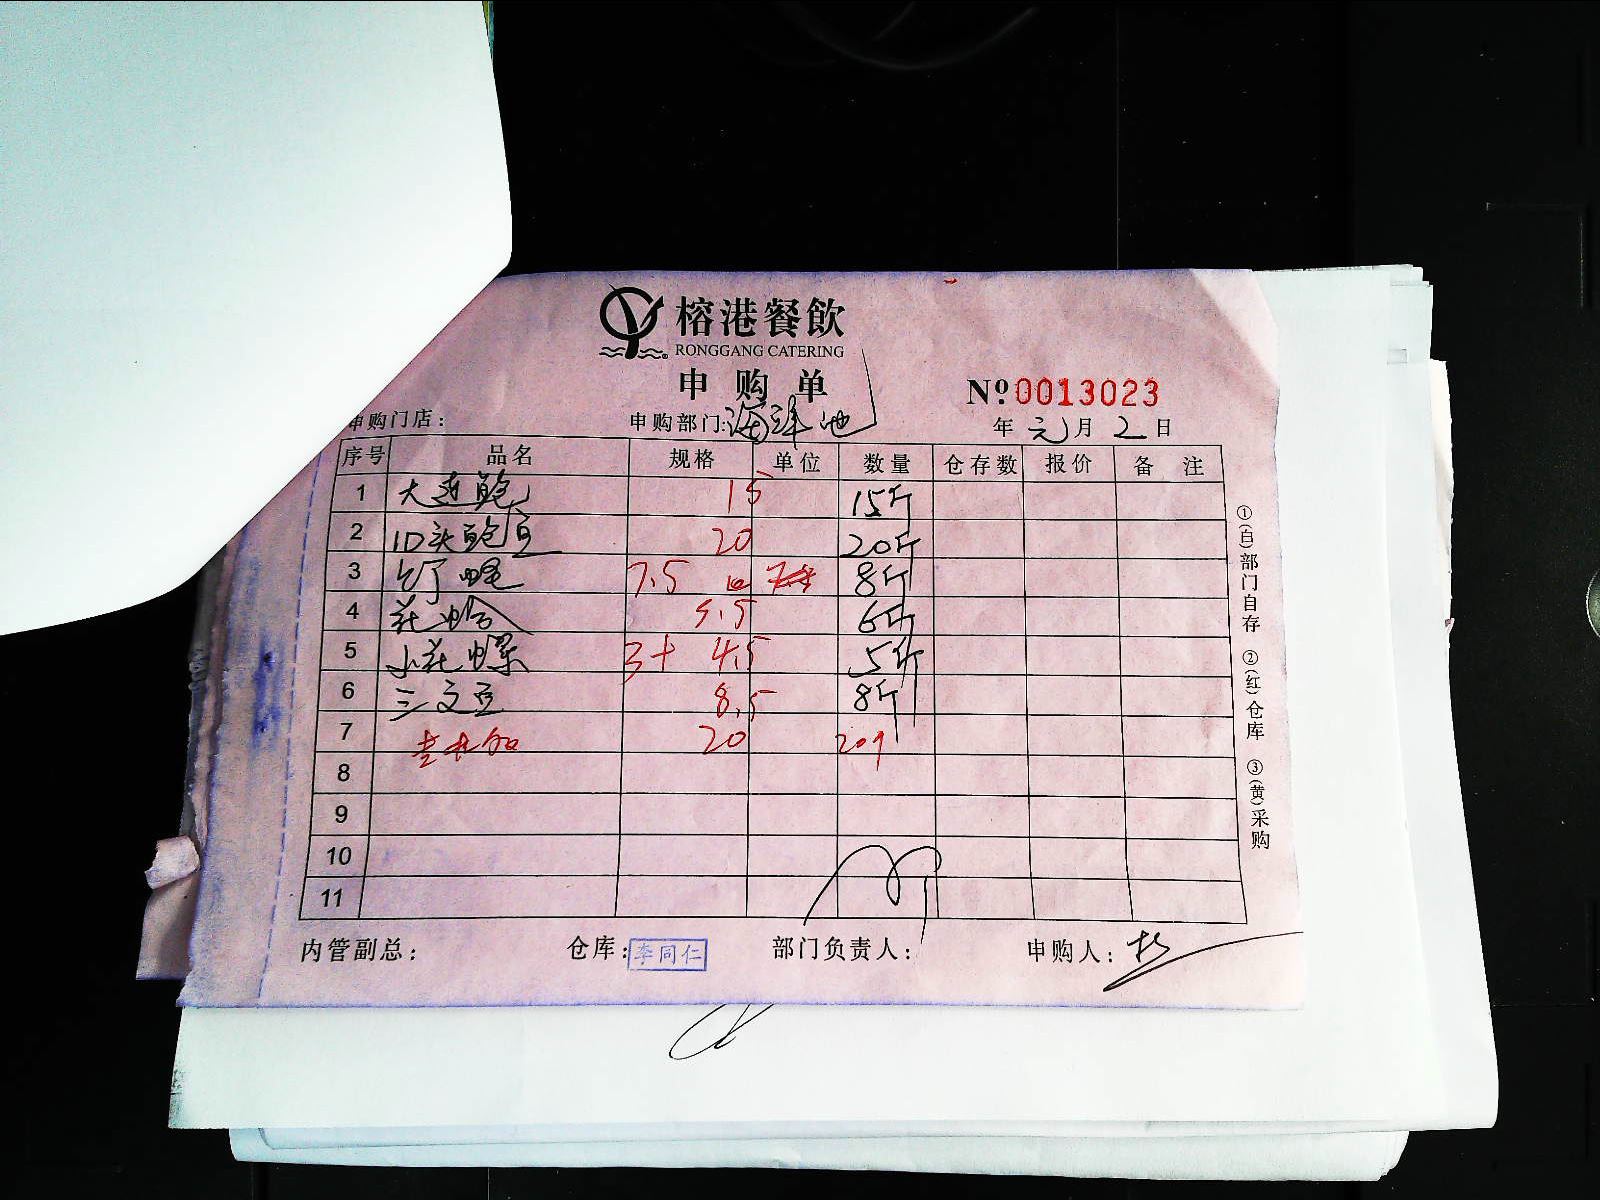 榕港餐飲
RONGGANG CATERING
申购单
№0013023
申购门店：
申购部门：海鲜池
年 元月 2日
序号 品名 规格 单位 数量 仓存数 报价 备注
1 大连鲍 15 15斤
2 10头鲍 20 20斤
3 7.5 8斤
4 花蛤 5.5 6斤
5 小花螺 3+ 4.5 5斤
6 三文 8.5 8斤
7 20
8
9
10
11
①(白)部门自存 ②(红)仓库 ③(黄)采购
内管副总：
仓库：李同仁
部门负责人：
申购人：